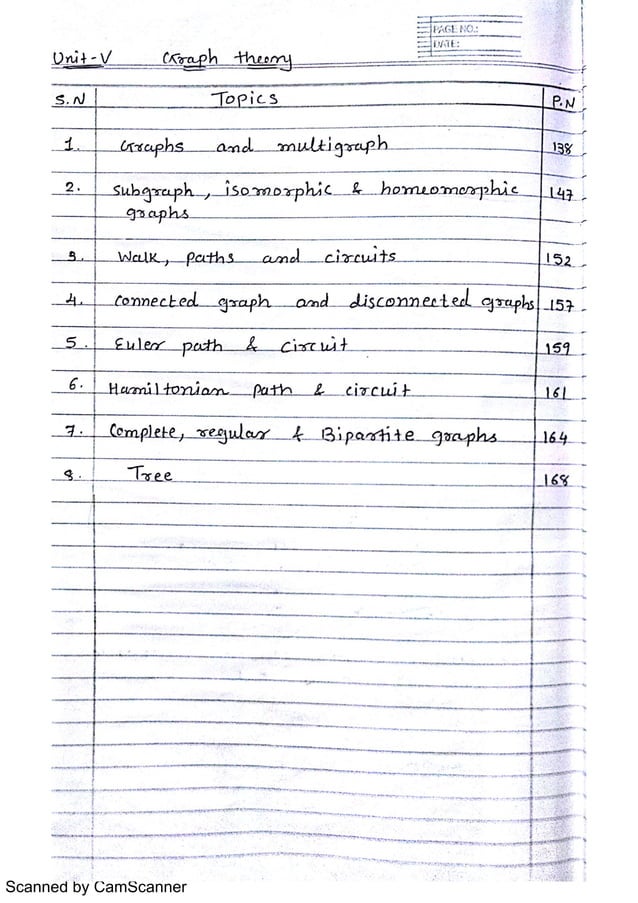 PAGE NO.:
DATE:
Unit-V Graph theory
S.N Topics P.N
1. Graphs and multigraph 138
2. Subgraph, isomorphic & homeomorphic 147
graphs
3. Walk, paths and circuits 152
4. Connected graph and disconnected graphs 157
5. Euler path & circuit 159
6. Hamiltonian path & circuit 161
7. Complete, regular & Bipartite graphs 164
8. Tree 168
Scanned by CamScanner